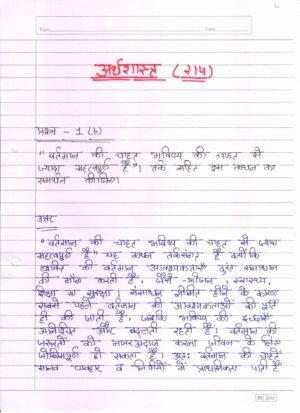 Topic
Date
अर्थशास्त्र (214)
प्रश्न - 1 (b)
"वर्तमान की चाहत भविष्य की चाहत से
ज्यादा महत्वपूर्ण है"। तर्क सहित इस कथन का
समर्थन कीजिए।
उत्तर
"वर्तमान की चाहत भविष्य की चाहत से ज्यादा
महत्वपूर्ण है" यह कथन तर्कसंगत है क्योंकि
व्यक्ति की वर्तमान आवश्यकताएँ तुरंत समाधान
की माँग करती हैं, जैसे - भोजन, स्वास्थ्य,
शिक्षा या सुरक्षा। संसाधन सीमित होने के कारण
सबसे पहले वर्तमान की आवश्यकताओं की पूर्ति
ही की जाती है, जबकि भविष्य की इच्छाएँ
अनिश्चित और बदलती रहती हैं। वर्तमान की
जरूरतों को नजरअंदाज करना जीवन के लिए
जोखिमपूर्ण हो सकता है। अतः वर्तमान की चाहतें
मानव व्यवहार व निर्णयों में प्राथमिकता पाती हैं